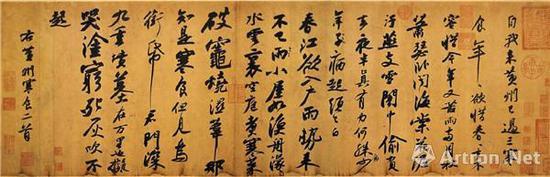 自我来黄州已過三寒
食年〻欲惜春〻去不
容惜今年又苦雨兩月秋
蕭瑟卧聞海棠花泥
汙燕支雪闇中偷負
去夜半真有力何殊少
年子病起頭已白
春江欲入户雨勢来
不已雨小屋如漁舟濛〻
水雲裏空庖煮寒菜
破竈燒濕葦那
知是寒食但見烏
銜帋君門深
九重墳墓在万里也擬
哭塗窮死灰吹不
起
右黄州寒食二首
Artron.Net